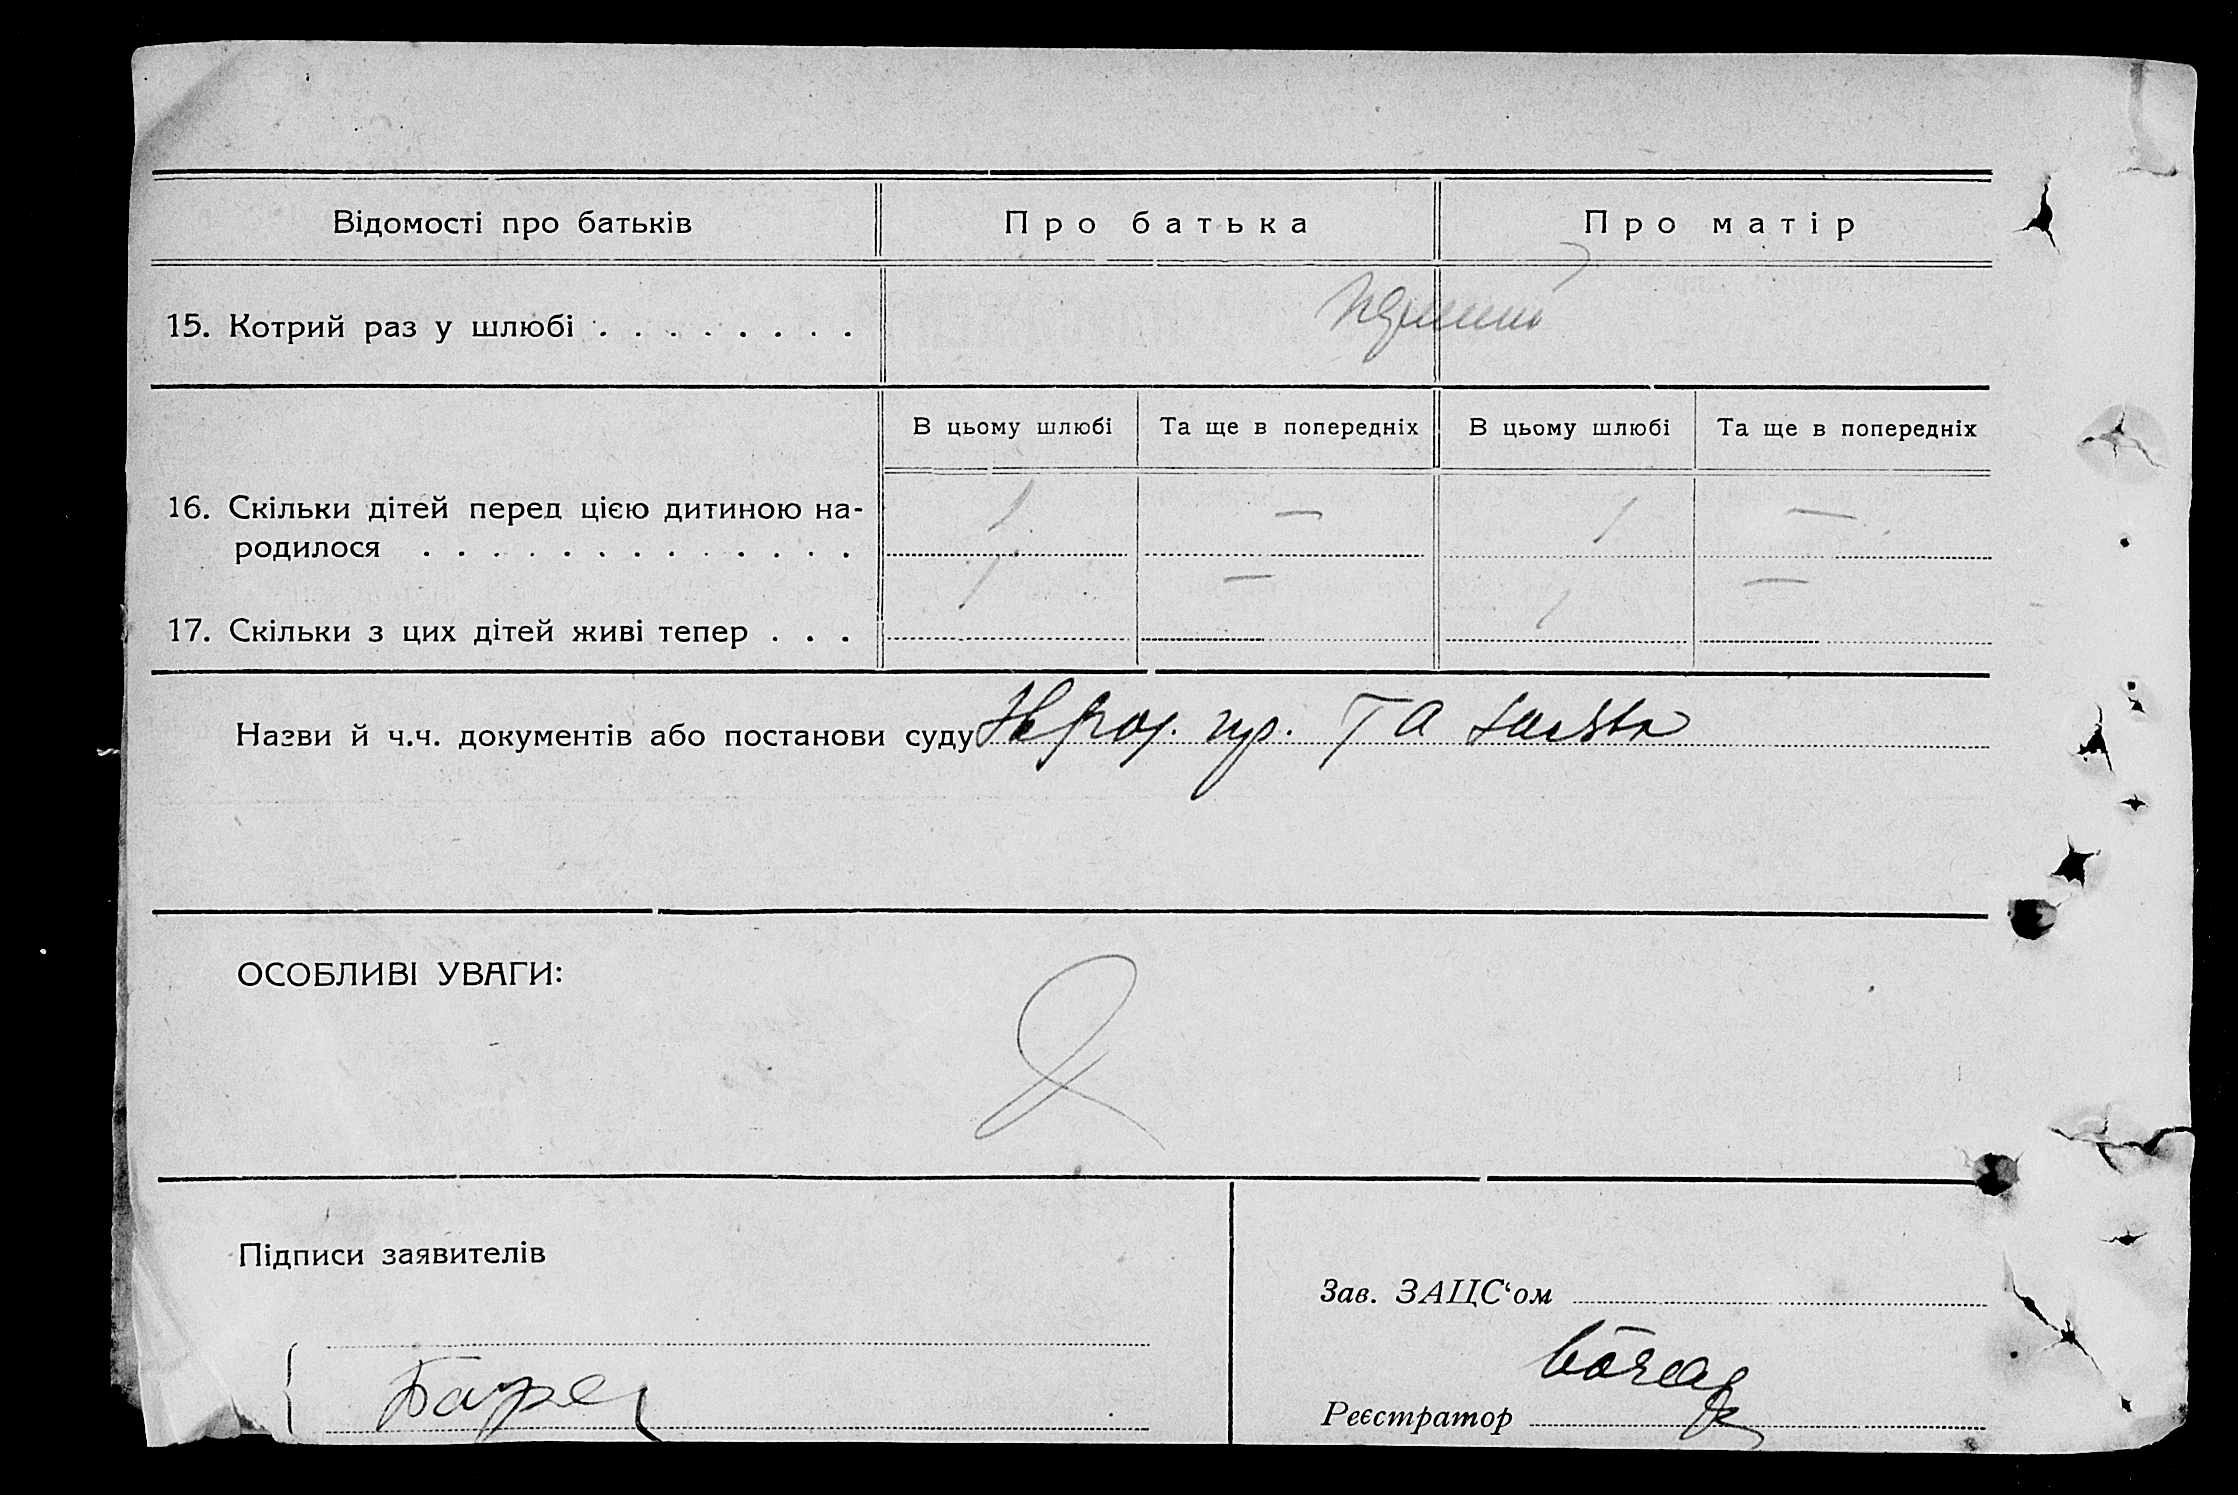 Відомості про батьків Про батька Про матір
15. Котрий раз у шлюбі . . . . . . . .
В цьому шлюбі Та ще в попередніх В цьому шлюбі Та ще в попередніх
16. Скільки дітей перед цією дитиною на-
родилося . . . . . . . . . . . . 1 — 1 —
17. Скільки з цих дітей живі тепер . . . 1 — 1 —
Назви й ч.ч. документів або постанови суду пр. та
ОСОБЛИВІ УВАГИ:
Підписи заявителів
Зав. ЗАЦС‘ом
Реєстратор